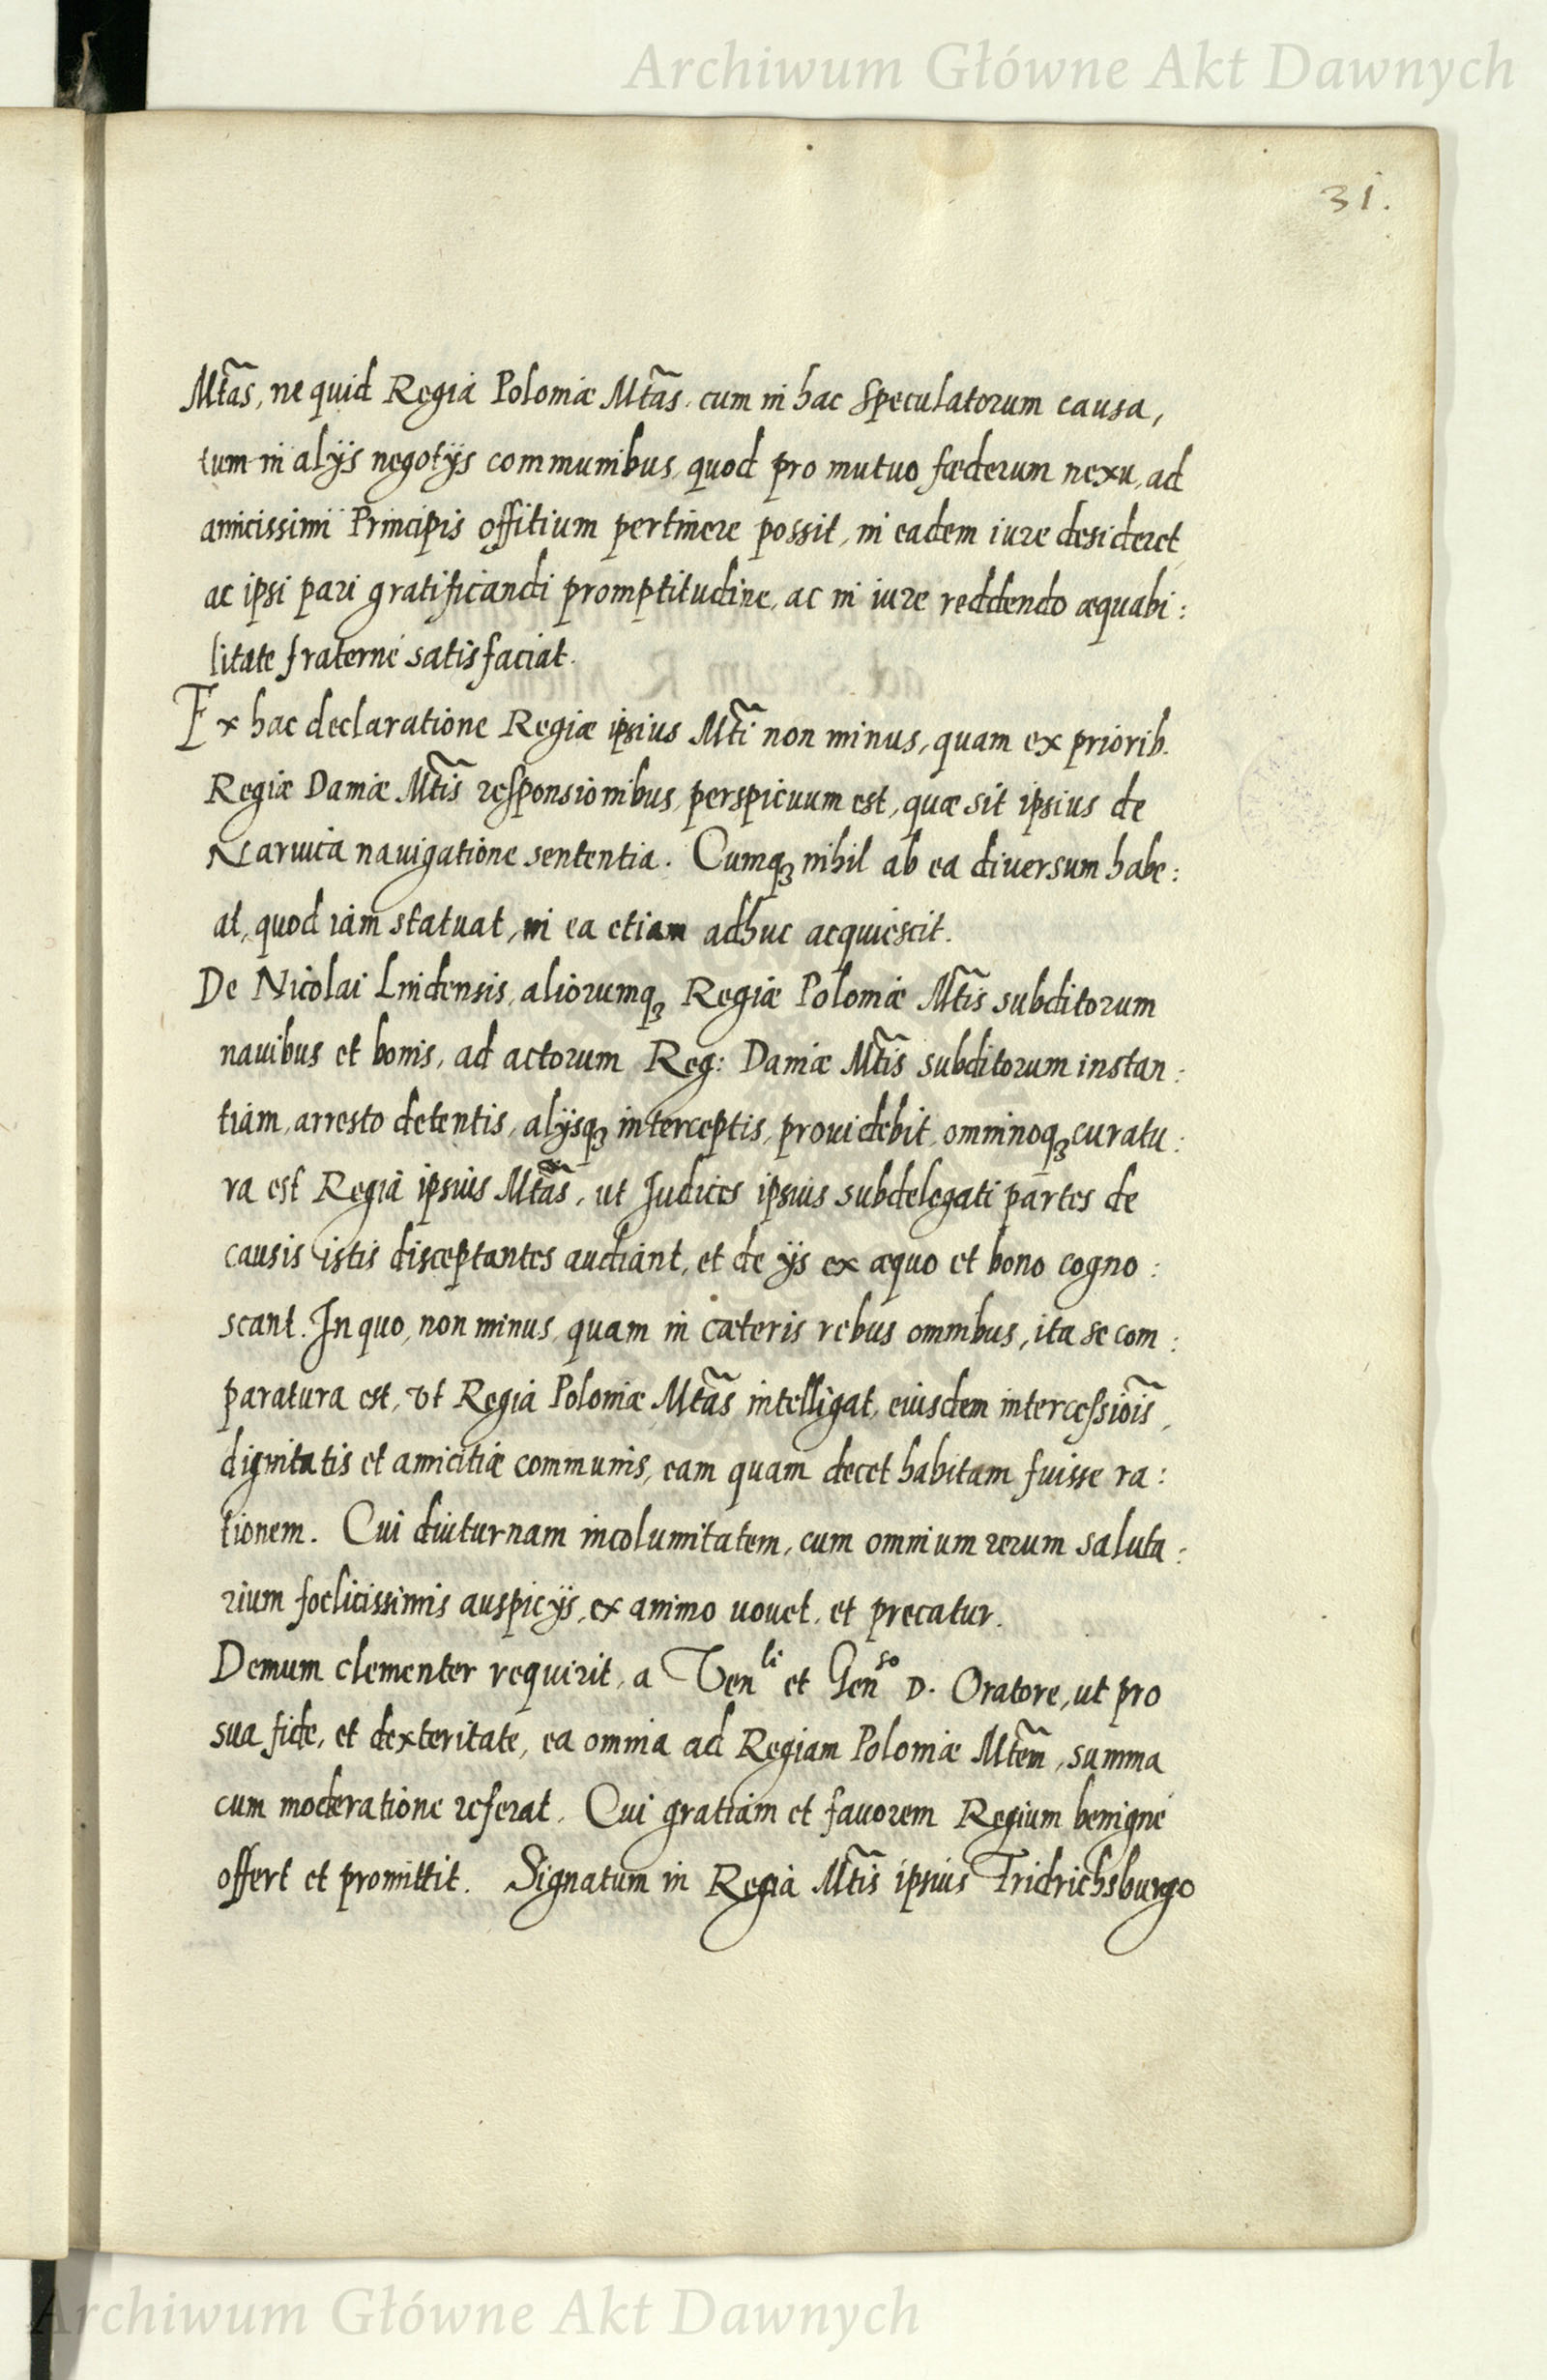 Archiwum Główne Akt Dawnych
31.
Mt̃as, ne quid Regia Poloniæ Mt̃as, cum in hac Speculatorum causa,
tum in alijs negotijs communibus, quod pro mutuo fæderum nexu, ad
amicissimi Principis offitium pertinere possit, in eadem iure desideret,
ac ipsi pari gratificandi promptitudine, ac in iure reddendo æquabi:
litate fraternè satisfaciat.
Ex hac declaratione Regiæ ipsius Mt̃i non minus, quam ex priorib.
Regiæ Daniæ Mt̃is responsionibus, perspicuum est, quæ sit ipsius de
Naruica nauigatione sententia. Cumqꝫ nihil ab ea diuersum habe:
at, quod iam statuat, in ea etiam adhuc acquiescit.
De Nicolai Lindensis, aliorumqꝫ Regiæ Poloniæ Mt̃is subditorum
nauibus et bonis, ad actorum Reg: Daniæ Mt̃is subditorum instan:
tiam, arresto detentis, alijsqꝫ interceptis, prouidebit, omninoqꝫ curatu:
ra est Regia ipsius Mt̃as, ut Judices ipsius subdelegati partes de
causis istis disceptantes audiant, et de ijs ex æquo et bono cogno:
scant. In quo, non minus, quam in cæteris rebus omnibus, ita se com:
paratura est, vt Regia Poloniæ Mt̃as intelligat, eiusdem intercessiõis,
dignitatis et amicitiæ communis, eam quam decet habitam fuisse ra:
tionem. Cui diuturnam incolumitatem, cum omnium rerum saluta:
rium foelicissimis auspicijs, ex animo uouet, et precatur.
Demum clementer requirit, a Venˡⁱ et Genˢᵒ D. Oratore, ut pro
sua fide, et dexteritate, ea omnia ad Regiam Poloniæ Mt̃em, summa
cum moderatione referat. Cui gratiam et fauorem Regium benignè
offert et promittit. Signatum in Regia Mt̃is ipsius Fridrichsburgo
Archiwum Główne Akt Dawnych